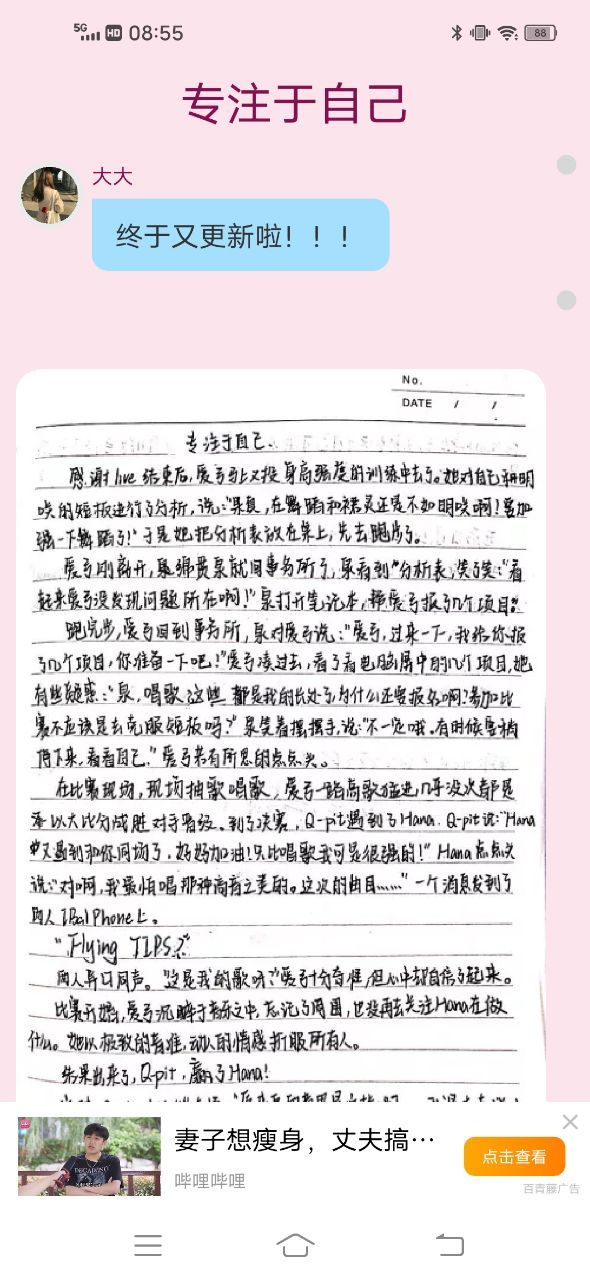 5G HD 08:55 88
专注于自己
大大
终于又更新啦！！！
No.
DATE / /
专注于自己.
感谢live结束后,爱弓马上又投身高强度的训练中去了。她对自己和明
日的短板进行了分析，说:"果真，在舞蹈和
强一下舞蹈了!"于是她把分析表放在桌上,先去跑步了。
爱弓刚离开,泉
起来爱弓没发现问题所在啊!"泉打开笔记本,帮爱弓报了几个项目。
跑完步,爱弓回到事务所,泉对爱弓说:"爱弓,过来一下,我给你报
了几个项目,你准备一下吧!"爱弓凑过去,看了看电脑屏中的几个项目,她
有些疑惑:"泉,唱歌这些都是我的长处了,为什么还要报名啊?参加比
赛不应该是去克服短板吗?"泉笑着摆摆手,说:"不一定哦。有时候要稍
停下来,看看自己."爱弓若有所思的点点头。
在比赛现场,现场抽歌唱歌,爱弓一路高歌猛进,几乎没次都是
以大比分战胜对手晋级。到了决赛,Q-pit遇到了Hana。Q-pit说:"Hana
又遇到和你同场了,好好加油!只比唱歌我可是很强的!"Hana点点头
说:"对啊,我最怕唱那种高音之类的。这次的曲目……"一个消息发到了
两人IPalPhone上。
"Flying TIPS?"
两人异口同声。"这是我的歌呀?"爱弓十分奇怪,但心中却自信了起来。
比赛开始,爱弓沉醉于音乐之中,忘记了周围,也没再去关注Hana在做
什么。她以极致的音准,动人的情感折服所有人。
结果出来了,Q-pit,赢了Hana!
妻子想瘦身，丈夫搞…
哔哩哔哩
点击查看
百青藤广告